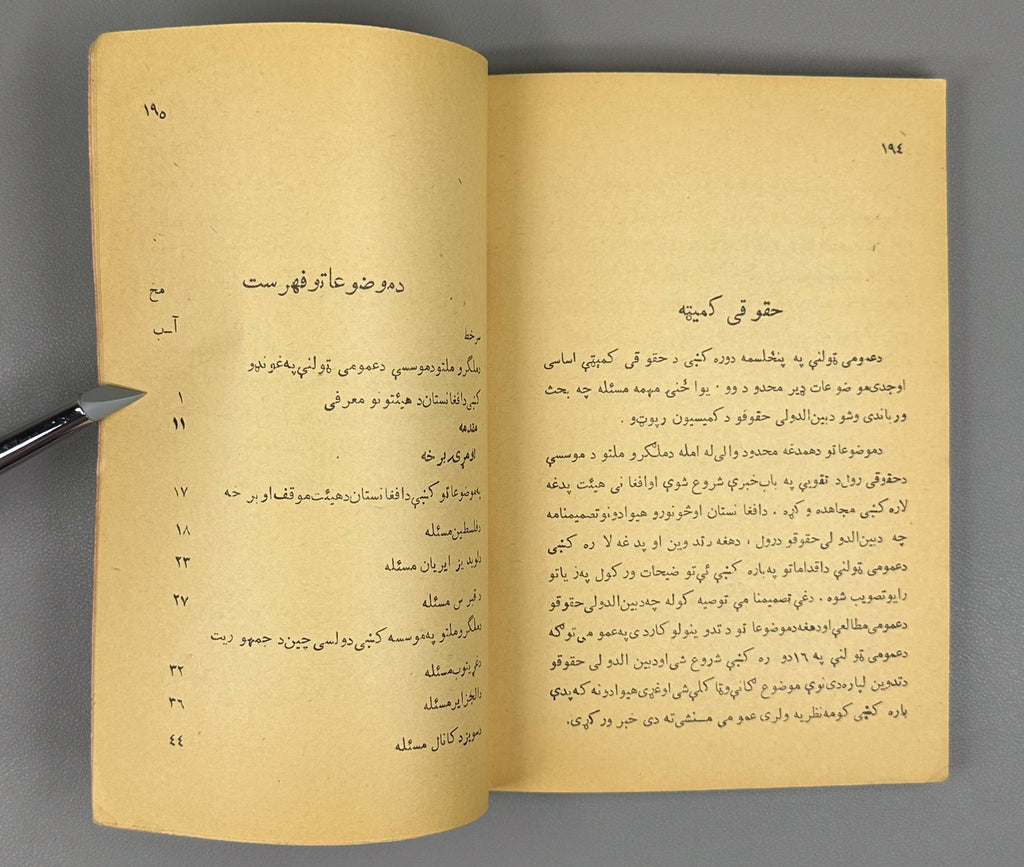 ١٩٤
حقوقی کمیټه
دعمومی ټولنې په پنځلسمه دوره کښې د حقوقی کمیټې اساسی
اوجدی موضوعات ډیر محدود وو. یواځنۍ مهمه مسئله چه بحث
ورباندی وشو دبین الدولی حقوقو د کمیسیون رپوټ و.
دموضوعاتو دهمدغه محدود والی له امله دملګرو ملتو د موسسې
دحقوقی رول د تقویې په باب خبرې شروع شوې اوافغانی هیئت پدغه
لاره کښې مجاهده وکړه. دافغانستان اوڅونورو هیوادونو تصمیمنامه
چه دبین الدولی حقوقو درول، دهغه دتدوین او پدغه لاره کښې
دعمومی ټولنې داقداماتو په باره کښې ئې توضیحات ورکول په زیاتو
رایو تصویب شوه. دغې تصمیمنامې توصیه کوله چه دبین الدولی حقوقو
دعمومی مطالعې اودهغه دموضوعاتو د تدوینولو کار دی په عمومی توګه
دعمومی ټولنې په ١٦ دوره کښې شروع شی اودبین الدولی حقوقو
دتدوین لپاره دی نوې موضوع ګانې وټاکلې شی اوغړی هیوادونه که پدې
باره کښې کومه نظریه ولری عمومی منشی ته دی خبر ورکړی.
١٩٥
دموضوعاتو فهرست
مخ
سرخط
آ-ب
دملګرو ملتو دموسسې دعمومی ټولنې په غونډو
کښې دافغانستان د هیئتونو معرفی ١
مقدمه ١١
لومړی برخه
په موضوعاتو کښې دافغانستان دهیئت موقف او برخه ١٧
دفلسطین مسئله ١٨
دلویدیز ایریان مسئله ٢٣
دقبرس مسئله ٢٧
دملګرو ملتو په موسسه کښې دولسی چین د جمهوریت
دغړیتوب مسئله ٣٢
دالجزایر مسئله ٣٦
دسویز د کانال مسئله ٤٤